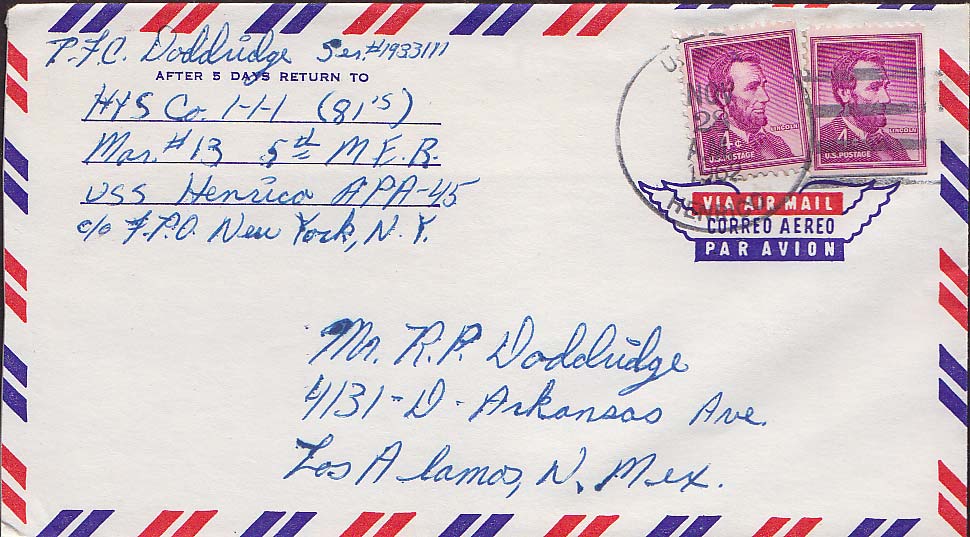 P.F.C. Doddridge Ser.#1933111
AFTER 5 DAYS RETURN TO
H&S Co. 1-1-1 (81's)
Mar. #13 5th M.E.B.
USS Henrico APA-45
c/o F.P.O. New York, N.Y.
NOV
29
1962
HENRICO
4¢
LINCOLN
U.S. POSTAGE
4¢
LINCOLN
U.S. POSTAGE
VIA AIR MAIL
CORREO AEREO
PAR AVION
Mr. R.P. Doddridge
4131-D-Arkansas Ave.
Los Alamos, N. Mex.